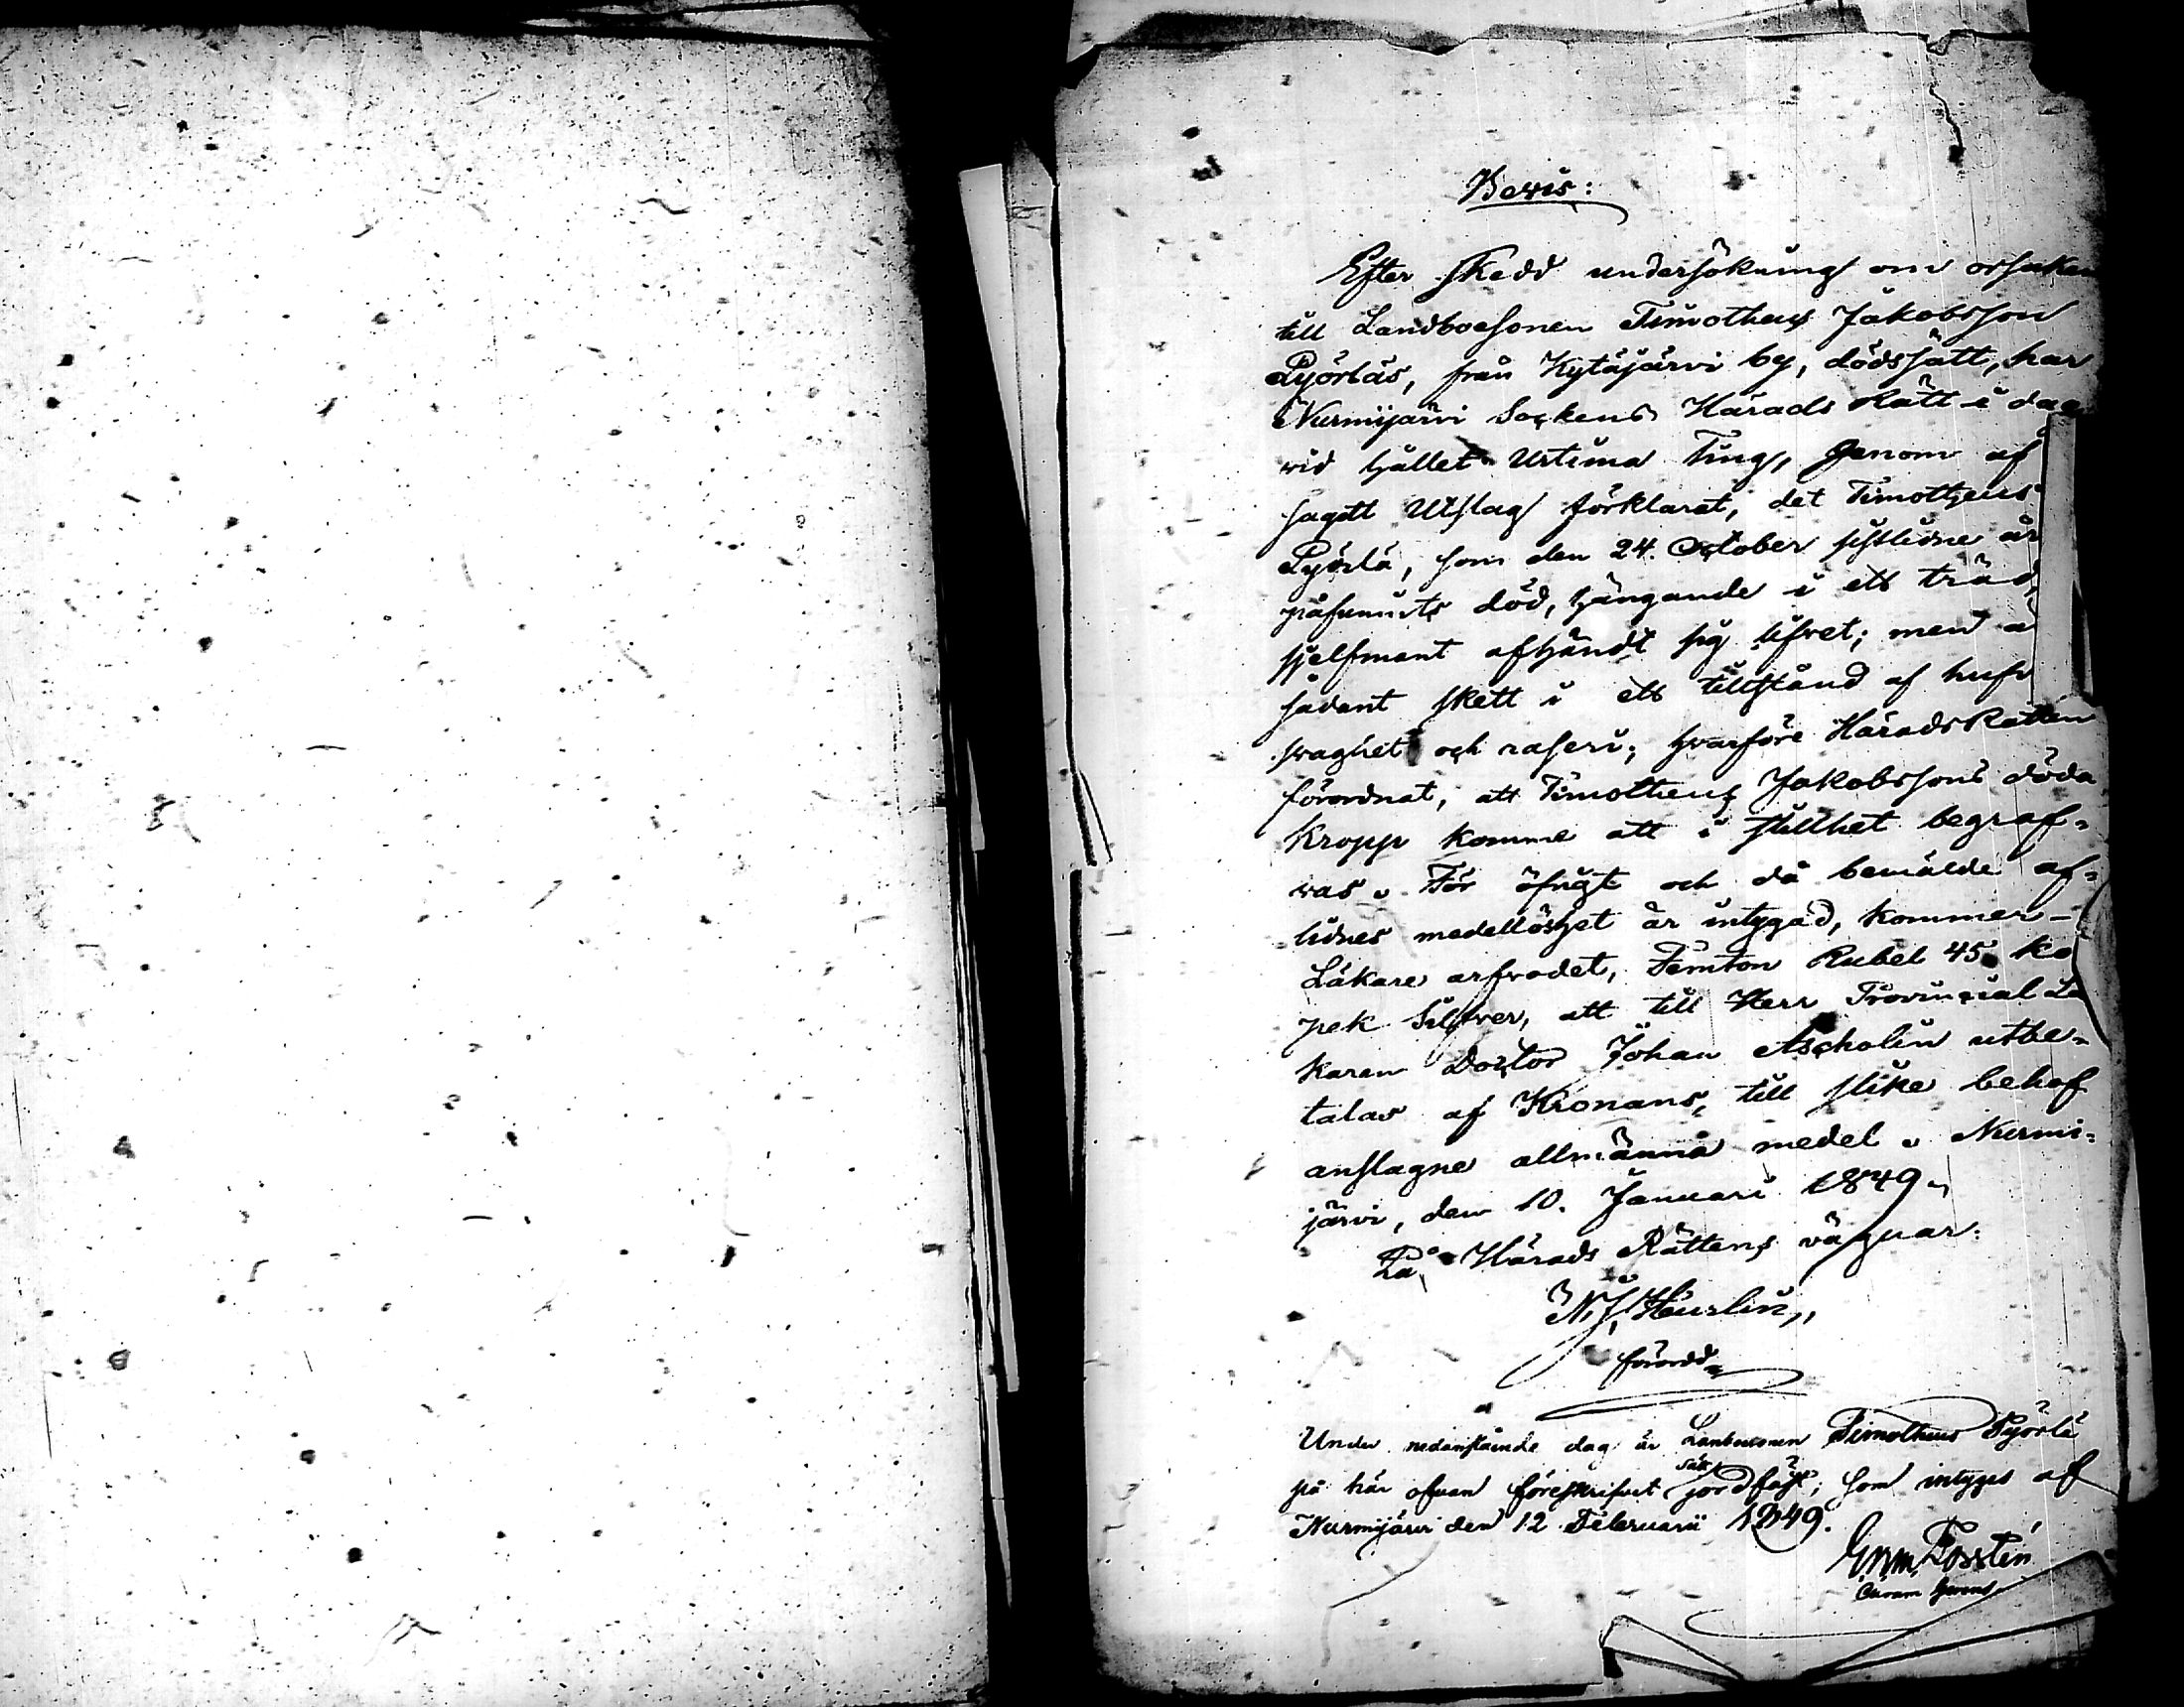 Bevis:
Efter skedd undersökning om orsaken
till Landboesonen Timotheus Jakobsson
Pyörläs, från Kytäjärvi by, dödssätt, har
Nurmijärvi Sockens Härads Rätt i dag
vid hållet Urtima Ting, genom af
sagdt Utslag förklarat, det Timotheus
Pyörlä, som den 24. October sistlidne år
påfunnits död, hängande i ett träd,
sjelfmant afhändt sig lifvet; men a
sådant skett i ett tillstånd af hufv
svaghet och raseri; hvarföre HäradsRätten
förordnat, att Timotheus Jakobssons döda
Kropp komme att i stillhet begraf-
vas. För öfrigt och då bemälde af-
lidnes medellöshet är intygad, kommer
Läkare arfvodet, Femton Rubel 45 ko
pek Silfver, att till Herr Provincial Lä
karen Doctor Johan Ascholin utbe-
talas af Kronans, till slike behof
anslagne allmänna medel. Nurmi-
järvi, den 10. Januari 1849.
På Härads Rättens vägnar:
N. J. Heurlin,,
förordd
Under nedanstående dag är Landbosonen Timotheus Pyörlä
på här ofvan föreskrifvet sätt jordfäst; som intygas af
Nurmijärvi den 12 Februarii 1849.